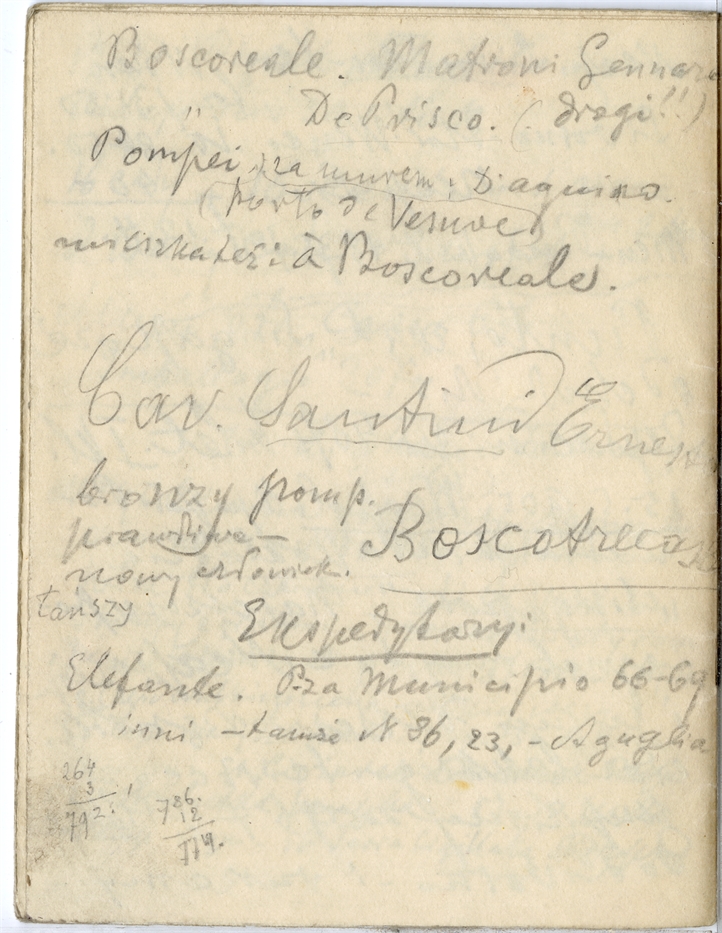 Boscoreale. Matroni Gennaro
" De Prisco. (drogi!!)
Pompei za murem: D'aquino.
(Porto de Vesuve)
mieszka też: à Boscoreale.
Cav. Santini Ernest
bronzy pomp. prawdziwe –
Boscotrecase
nowy człowiek.
tańszy
Ekspedytorzy:
Elefante. P-za Municipio 66-69
inni – tamże N 86, 23, – Aguglia
264
3
792
786.
12
774.